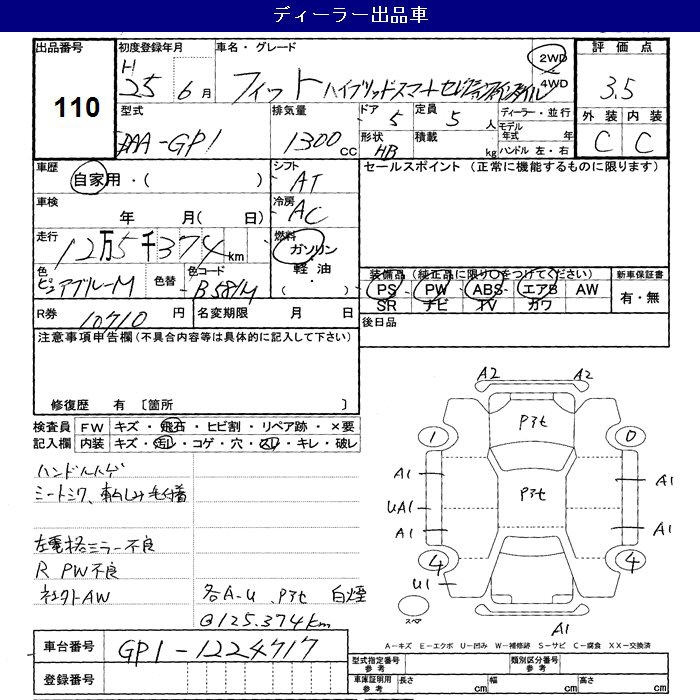 ディーラー出品車
出品番号 初度登録年月 車名・グレード 2WD 4WD 評価点
110 H 25年 6月 フィット ハイブリッドスマートセレクション 3.5
型式 排気量 ドア 定員 ディーラー・並行 外装 内装
DAA-GP1 1300cc 5 5人 モデル年式 年 C C
形状 HB 積載 kg ハンドル 左・右
車歴 シフト セールスポイント (正常に機能するものに限ります)
自家用・( ) AT
車検 冷房
年 月( 日) AC
走行 燃料
12万5千374km ガソリン・軽油・( )
色 色替 色コード 装備品(純正品に限り○をつけてください) 新車保証書
ピュアブルーM B581M PS PW ABS エアB AW 有・無
SR ナビ TV カワ
R券 10710円 名変期限 月 日 後日品
注意事項申告欄(不具合内容等は具体的に記入して下さい)
修復歴 有 〔箇所 〕
検査員 FW キズ・飛石・ヒビ割・リペア跡・×要
記入欄 内装 キズ・汚レ・コゲ・穴・スレ・キレ・破レ
ハンドルハゲ
シートシワ、
左電格ミラー不良
R PW不良
社外AW 各A-U P3t 白煙
@125.374km
A2 A2
P3t
1 0
A1 P3t A1
UA1
A1 A1
4 4
U1
スマ
A1
A-キズ E-エクボ U-凹み W-補修跡 S-サビ C-腐食 XX-交換済
車台番号 GP1-1224717
登録番号
型式指定番号 参考 類別区分番号 参考
車庫証明用 参考 長さ cm 幅 cm 高さ cm